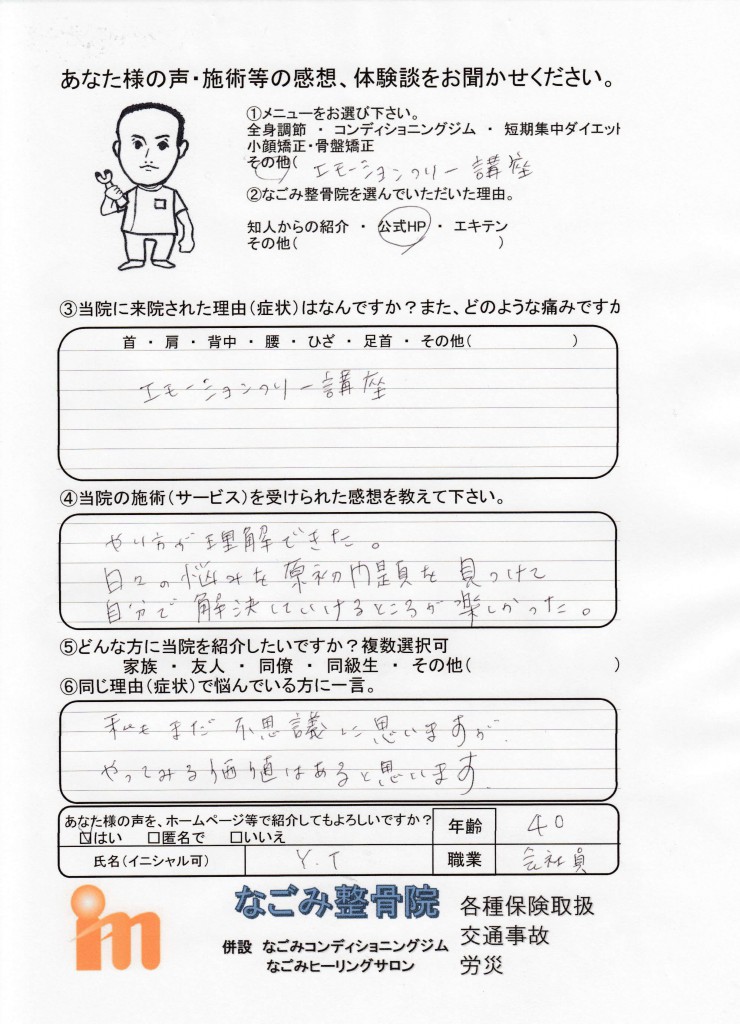 あなた様の声・施術等の感想、体験談をお聞かせください。
①メニューをお選び下さい。
全身調節 ・ コンディショニングジム ・ 短期集中ダイエット
小顔矯正・骨盤矯正
その他( エモーションフリー講座
②なごみ整骨院を選んでいただいた理由。
知人からの紹介 ・ 公式HP ・ エキテン
その他( )
③当院に来院された理由(症状)はなんですか?また、どのような痛みですか
首 ・ 肩 ・ 背中 ・ 腰 ・ ひざ ・ 足首 ・ その他( )
エモーションフリー講座
④当院の施術(サービス)を受けられた感想を教えて下さい。
やり方が理解できた。
日々の悩みを原初問題を見つけて
自分で解決していけるところが楽しかった。
⑤どんな方に当院を紹介したいですか?複数選択可
家族 ・ 友人 ・ 同僚 ・ 同級生 ・ その他( )
⑥同じ理由(症状)で悩んでいる方に一言。
私もまだ不思議に思いますが、
やってみる価値はあると思います
あなた様の声を、ホームページ等で紹介してもよろしいですか?
☑はい □匿名で □いいえ
年齢 40
氏名(イニシャル可) Y.T 職業 会社員
im
なごみ整骨院
併設 なごみコンディショニングジム
なごみヒーリングサロン
各種保険取扱
交通事故
労災